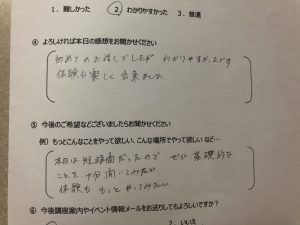 1. 難しかった 2. わかりやすかった 3. 普通
④ よろしければ本日の感想をお聞かせください
初めてのお話しでしたが わかりやすかったです
体験も楽しく出来ました。
⑤ 今後のご希望などございましたらお聞かせください
例）もっとこんなことをやって欲しい、こんな場所でやって欲しい など…
本日は短時間だったので ぜひ 基礎的な
ことを 十分 聞いてみたい
体験も もっと やってみたい
⑥ 今後講座案内やイベント情報メールをお送りしてもよろしいですか？